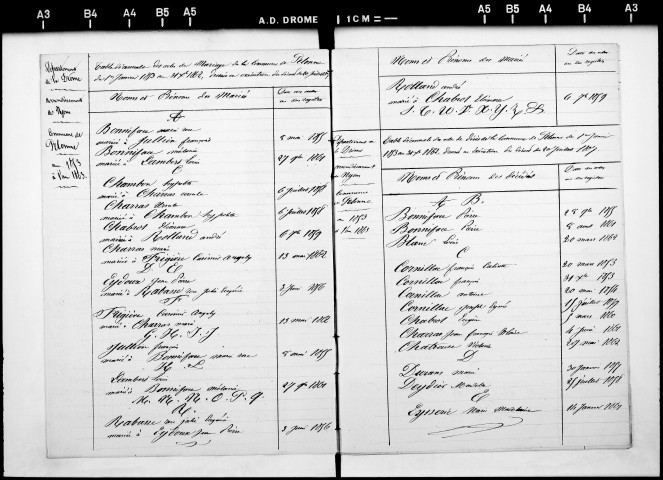 A3 B4 A4 B5 A5 A.D. DROME 1CM= A5 B5 A4 B4 A3
Département
de la Drôme
Arrondissement
de Nyon
Commune de
Pelonne
an 1853
à l'an 1863.
Table décennale des actes de Mariage de la commune de Pelonne
du 1er Janvier 1853 au 31 Xbre 1862, dressée en exécution du décret du 20 juillet 1807
Noms et Prénoms des Mariés
Date des actes
ou des registres
A
Bonnifoux marie
mariée à Jullien françois 8 mai 1855
Bonnifoux mélanie
mariée à Lambert Louis 27 9bre 1861
C
Chambon hyppolite
mariée à Charras 6 juillet 1858
Charras
marié à Chambon hyppolite 6 juillet 1858
Chabot
mariée à Rolland andré 6 9bre 1859
Charras marie
mariée à Frégière Casimir 13 mai 1862
D E
Eydoux Jean Pierre
marié à Rabasse 3 Juin 1856
F
Frégière Casimir
marié à Charras marie 13 mai 1862
G. H. I. J
Jullien françois
marié à Bonnifoux 8 mai 1855
K. L
Lambert Louis
marié à Bonnifoux mélanie 27 9bre 1861
M. N. O. P. Q
R.
Rabasse
mariée à Eydoux Jean Pierre 3 Juin 1856
Noms et Prénoms des Mariés
Date des actes
ou des registres
Rolland andré
marié à Chabot 6 9bre 1859
S. T. U. V. X. Y. Z
Département de
la Drôme
arrondissement
de Nyon
Commune
de Pelonne
an 1853
à l'an 1863
Table décennale des actes de Décès de la commune de Pelonne du 1er Janvier
1853 au 31 Xbre 1862. Dressée en exécution du Décret du 20 juillet 1807.
Noms et Prénoms des Décédés
Date des actes
ou des registres
A B.
Bonnifoux Pierre 28 9bre 1855
Bonnifoux Pierre 8 aout 1861
Blanc Louis 20 mars 1862
C
Cornillon françois 20 mars 1853
Cornillon françois 1853
Cornillon antoine 20 mai 1854
Cornillon joseph 15 juillet 1857
Chabot 1 mars 1860
Charras Jean françois 4 juin 1861
Chatrousse Victoire 29 mai 1862
D
Durans marie 30 janvier 1857
25 juillet 1858
E
Eysseric Marie 14 Janvier 1861